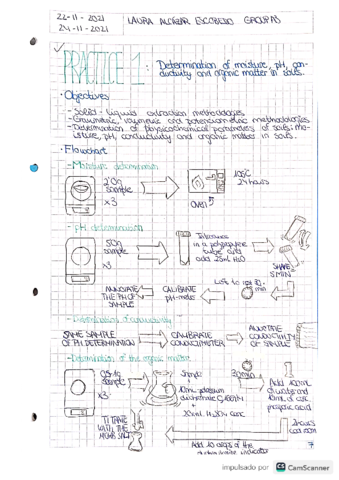 22-11-2021
24-11-2021
LAURA ALCÁZAR ESCRIBANO GROUP A3
PRACTICE 1: Determination of moisture, pH, con-
ductivity and organic matter in soils.
· Objectives
- Solid-liquid extraction methodologies
- Gravimetric, volumetric and potentiometric methodologies
- Determination of physicochemical parameters of soils: mo-
isture, pH, conductivity and organic matter in soil.
· Flowchart
- Moisture determination
sample
x3
OVEN
24 hours
- pH determination
sample
x3
in a polypropylene
tube and
add 25ml H2O
SHAKE
5 MIN
min
CALIBRATE
pH-meter
ANNOTATE
THE PH OF
SAMPLE
- Determination of conductivity
SAME SAMPLE
OF PH DETERMINATION
CALIBRATE
CONDUCTIMETER
ANNOTATE
CONDUCTIVITY
OF SAMPLE
- Determination of the organic matter
sample
x3
10mL potassium
dichromate
30min
Add 100mL
of water and
10mL of
acid
2 hours
Add 10 drops of the
indicator
TITRATE
WITH THE
MOHR SALT
7
impulsado por CS CamScanner